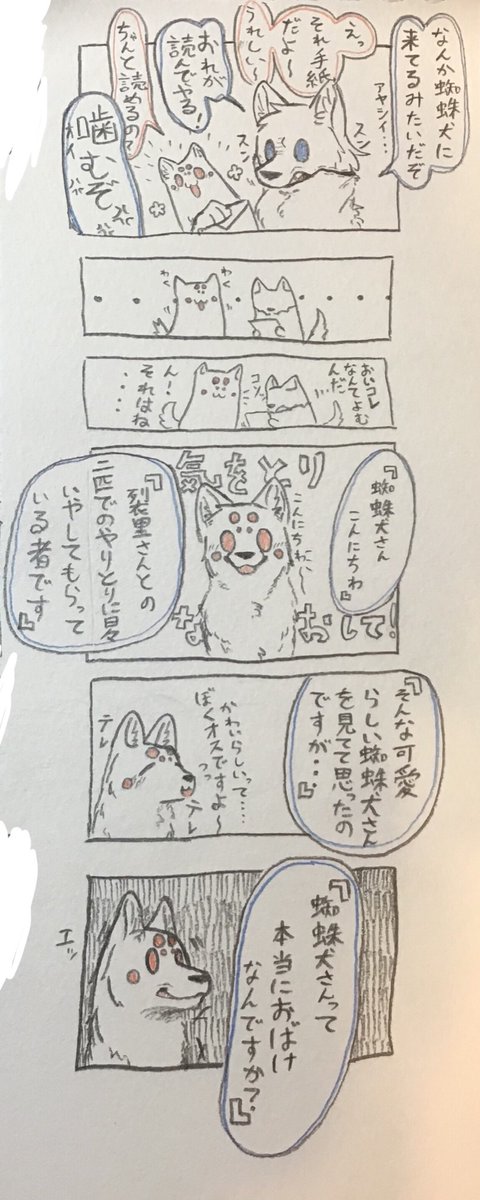 なんか蜘蛛犬に
来てるみたいだぞ
アヤシイ…
スン
スン
えっ
それ手紙
だよ〜
うれしい〜
おれが
読んでやる!
ちゃんと読めるの?
噛むぞ
わく
わく
おいコレ
なんてよむ
んだ…
コソ
ん!…
それはね
・・・・
気をとり
なおして!
『蜘蛛犬さん
こんにちわ』
こんにちわ〜
『裂里さんとの
二匹でのやりとりに日々
いやしてもらって
いる者です』
『そんな可愛
らしい蜘蛛犬さん
を見てて思ったの
ですが・・』
かわいらしいって……
ぼくオスですよ〜
っっ
テレ
テレ
『蜘蛛犬さんって
本当におばけ
なんですか?』
エッ